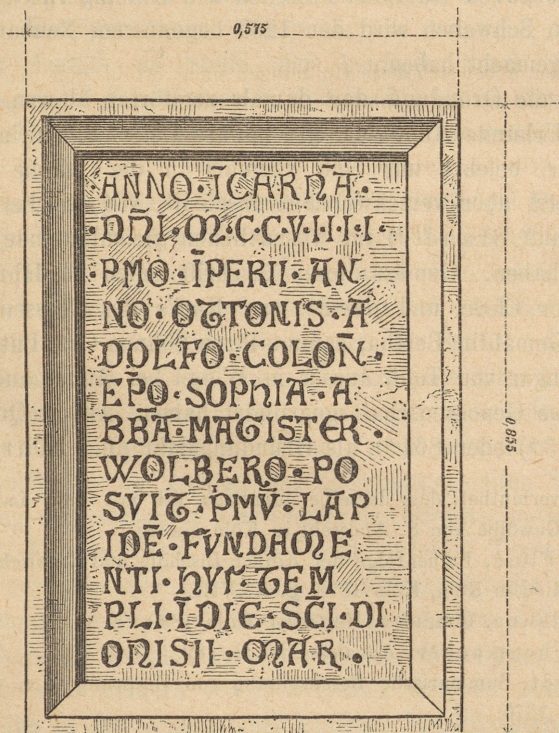 0,575
·ANNO·ĪCARN̄A·
·DN̄I·M·C·C·V·I·I·I·I·
·PMO·ĪPERII·AN
NO·OTTONIS·A
DOLFO·COLON̄·
EP̄O·SOPHIA·A
BB̄A·MAGISTER·
WOLBERO·PO
SVIT·PMV̄·LAP
IDĒ·FVNDAME
NTI·HVI'·TEM
PLI·Ī·DIE·SC̄I·DI
ONISII·MAR·
0,855